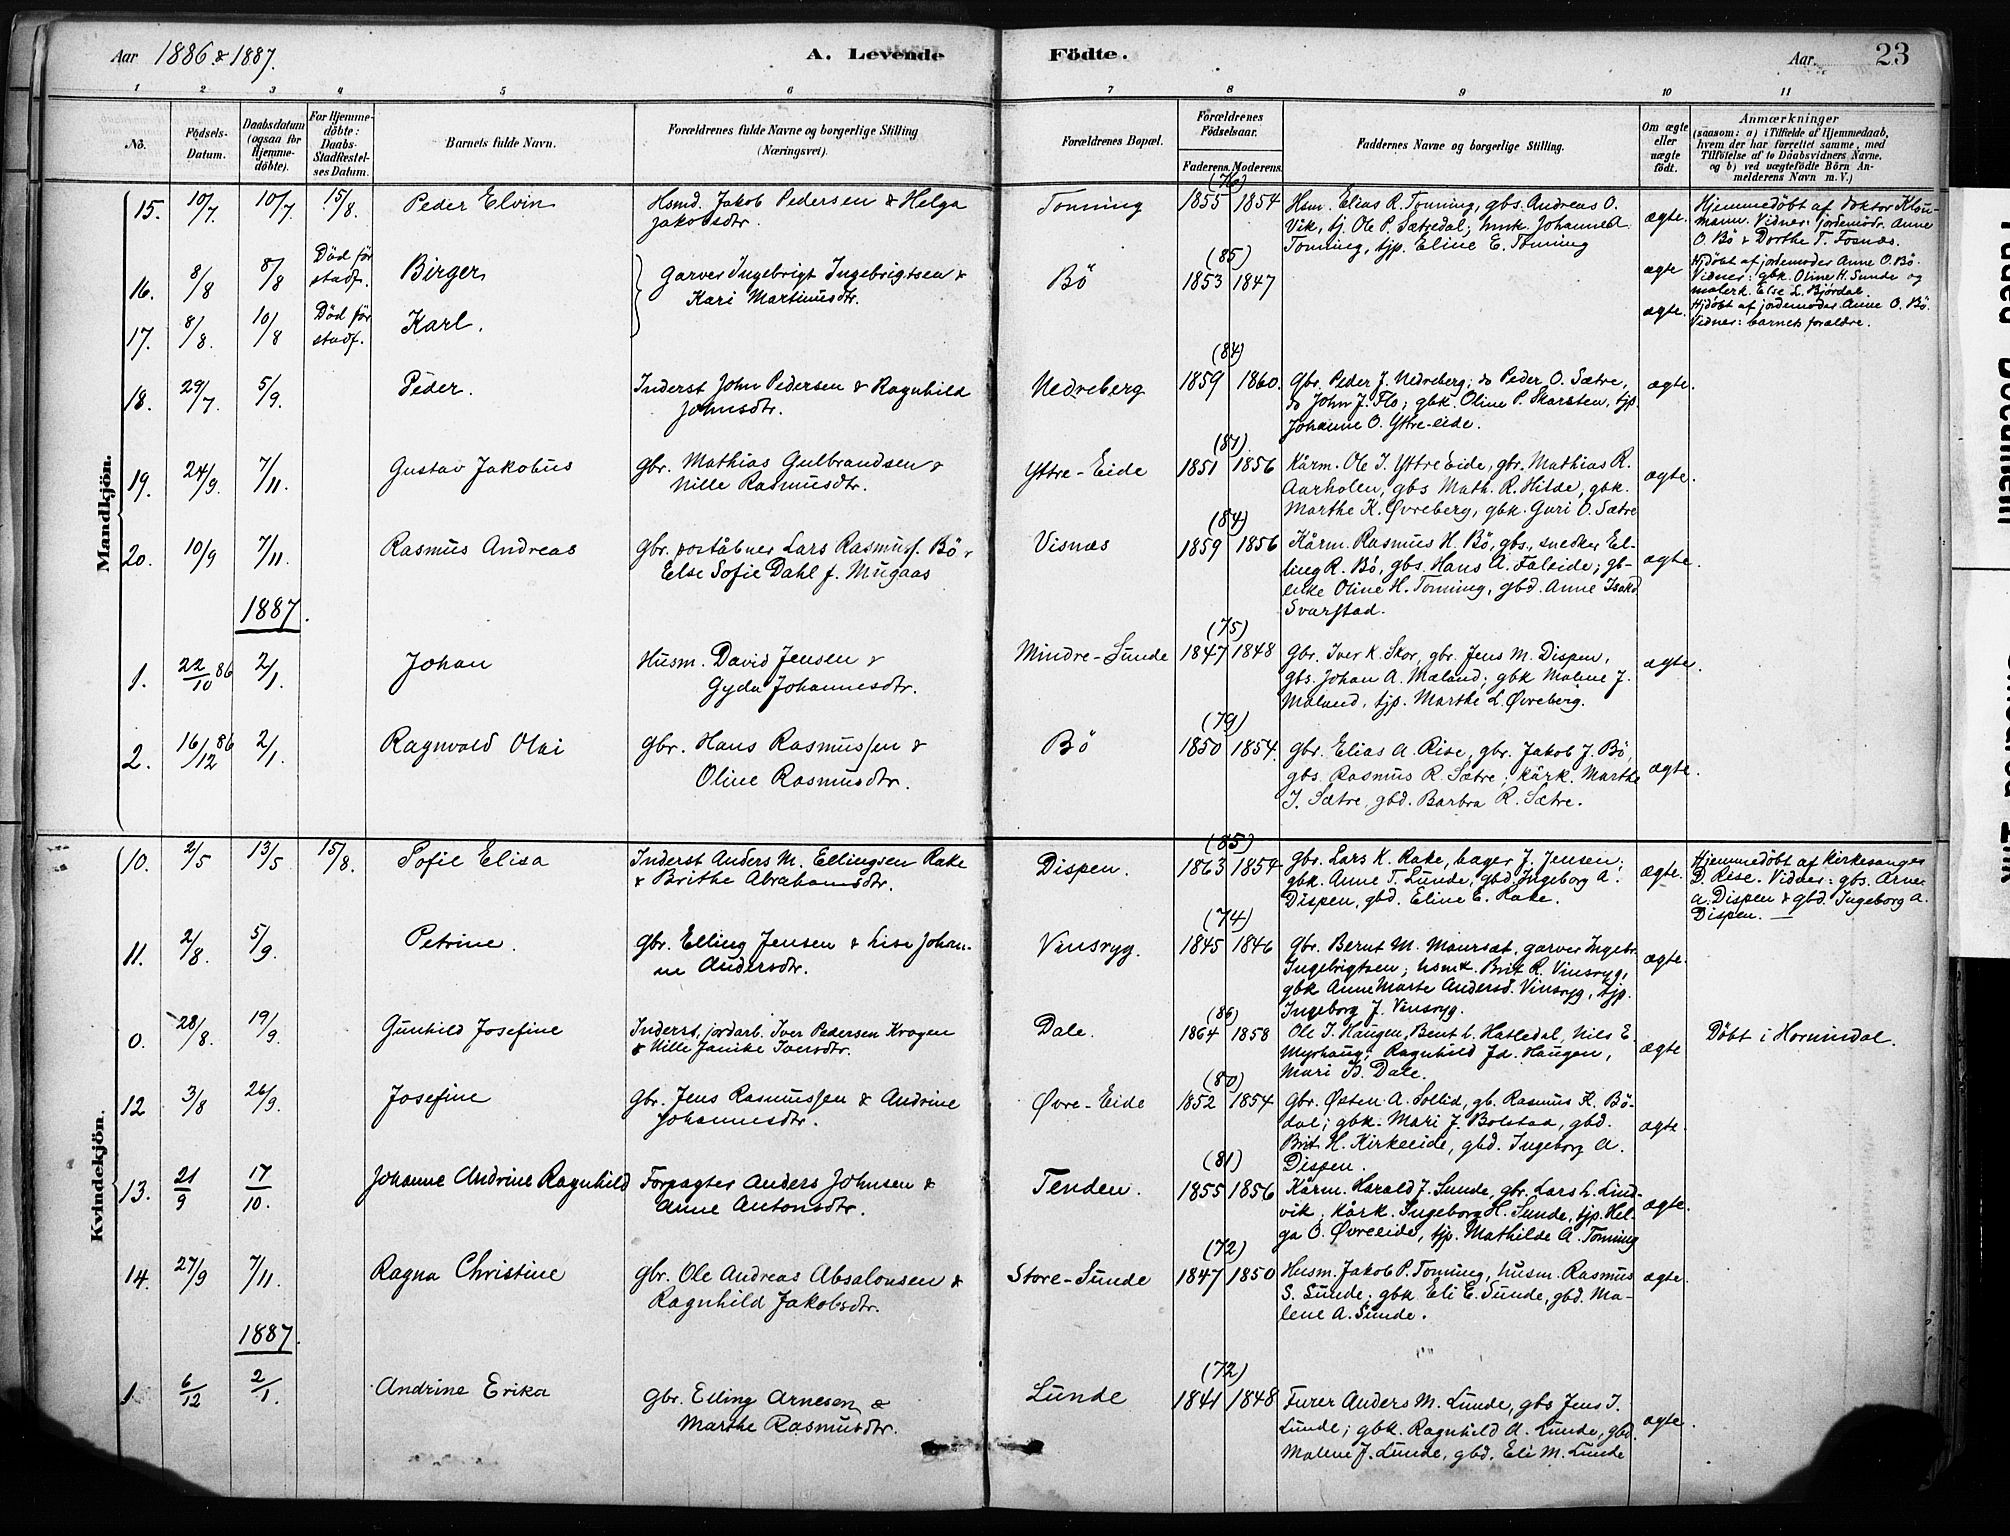 Aar 1886 & 1887.
A. Levende Födte.
Aar. 23
1 2 3 4 5 6 7 8 9 10 11
No.
Födsels-Datum.
Daabsdatum (ogsaa for Hjemme-döbte).
For Hjemme-döbte: Daabs-Stadfæstel-ses Datum.
Barnets fulde Navn.
Forældrenes fulde Navne og borgerlige Stilling (Næringsvei).
Forældrenes Bopæl.
Forældrenes Födselsaar.
Faderens. Moderens.
Faddernes Navne og borgerlige Stilling.
Om ægte eller uægte födt.
Anmærkninger
(saasom: a) i Tilfælde af Hjemmedaab, hvem der har forrettet samme, med Tilföielse af to Daabsvidners Navne, og b) ved uægtefödte Börn An-melderens Navn m. V.)
Mandkjön.
15. 10/7 10/7 15/8. Peder Elvin
Hsmd. Jakob Pedersen & Helga
Jakobsdtr.
Tonning (76) 1855 1854
Hsm. Elias R. Tonning, gbs. Andreas O.
Vik, tj. Ole P. Sætredal; hmk. Johanne A.
Tonning, tjp. Eline E. Tonning
ægte.
Hjemmedöbt af doktor Klou-
mann. Vidner: jordemodr. Anne
O. Bö & Dorthe T. Fosnæs.
16. 8/8 8/8 Död för stadf. Birger
Garver Ingebrigt Ingebrigtsen &
Kari Martinusdtr.
Bö (85) 1853 1847
ægte
Hjdöbt af jordemoder Anne O. Bö.
Vidner: gbk. Oline H. Sunde og
malerk. Else L. Björdal.
17. 8/8. 10/8 Död för stadf. Karl.
ægte.
Hjdöbt af jordemoder Anne O. Bö.
Vidner: barnets forældre.
18. 29/7. 5/9. Peder.
Inderst John Pedersen & Ragnhild
Johnsdtr.
Nedreberg (84) 1859 1860.
Gbr. Peder J. Nedreberg; do Peder O. Sætre,
do John J. Flo; gbk. Oline P. Skarsten, tjp.
Johanne O. Yttre-eide.
ægte.
19. 24/9. 7/11. Gustav Jakobus
Gbr. Mathias Gulbrandsen &
Nille Rasmusdtr.
Yttre-Eide (81) 1851 1856
Kårm. Ole I. Yttre Eide, gbr. Mathias R.
Aarholen, gbs Math. R. Hilde, gbk.
Marthe K. Øvreberg, gbk. Guri O. Sætre
ægte.
20. 10/9 7/11. Rasmus Andreas
Gbr. poståbner Lars Rasmuss. Bö &
Else Sofie Dahl f. Mugaas
Visnæs (84) 1859 1856
Kårm. Rasmus H. Bö, gbs., snedker El-
ling R. Bö, gbs. Hans A. Faleide; gb-
enke Oline H. Tonning, gbd. Anne Isakd
Svarstad.
ægte.
1887.
1. 22/10 86 2/1. Johan
Husm. David Jensen &
Gyda Johannesdtr.
Mindre-Sunde (75) 1847 1848
Gbr. Iver K. Skor, gbr. Jens M. Dispen,
gbs. Johan A. Mæland; gbk Malene J.
Mæland, tjp. Marthe L. Øvreberg.
ægte.
2. 16/12 86 2/1. Ragnvald Olai
Gbr. Hans Rasmussen &
Oline Rasmusdtr.
Bö (79) 1850 1854.
Gbr. Elias A. Rise, gbr. Jakob J. Bö,
gbs. Rasmus R. Sætre; kårk. Marthe
I. Sætre, gbd. Barbra R. Sætre.
ægte.
Kvindekjön.
10. 2/5 13/5 15/8. Sofie Elisa
Inderst Anders M. Ellingsen Rake
& Brithe Abrahamsdtr.
Dispen. (85) 1863 1854
Gbr. Lars K. Rake, bager J. Jensen;
gbk. Anne T. Lunde, gbd. Ingeborg A.
Dispen, gbd. Eline E. Rake.
ægte.
Hjemmedöbt af kirkesanger
D. Rise. Vidner: gbs. Arne
A. Dispen & gbd. Ingeborg A.
Dispen.
11. 2/8. 5/9. Petrine.
Gbr. Elling Jensen & Lise Johan-
ne Andersdtr.
Vinsryg. (74) 1845 1846
Gbr. Bernt M. Maurset, garver Ingebr.
Ingebrigtsen; hsmk. Brit R. Vinsryg,
gbk Anne Marte Andersd. Vinsryg, tjp.
Ingeborg J. Vinsryg.
ægte.
0. 28/8. 19/9. Gunhild Josefine
Inderst, jordarb. Iver Pedersen Krogen
& Nille Janike Iversdtr.
Dale. (86) 1864 1858
Ole I. Haugen, Bent L. Hatledal, Nils E.
Myrhaug; Ragnhild Jd. Haugen,
Mari B. Dale.
ægte
Döbt i Hornindal.
12 3/8 26/9. Josefine
Gbr. Jens Rasmussen & Andrine
Johannesdtr.
Øvre-Eide (80) 1852 1854
Gbr. Østen A. Sollid, gb. Rasmus K. Bö-
dal; gbk. Mari J. Bolstad, gbd.
Brit H. Kirkeeide, gbd. Ingeborg A.
Dispen.
ægte.
13. 21/9 17/10. Johanne Andrine Ragnhild
Forpagter Anders Johnsen &
Anne Antonsdtr.
Tenden. (81) 1855 1856
Kårm. Harald J. Sunde, gbr. Lars L. Lind-
vik; kårk. Ingeborg H. Sunde, tjp. Hel-
ga O. Øvreeide, tjp. Mathilde A. Tonning
ægte.
14. 27/9 7/11. Ragna Christine
Gbr. Ole Andreas Absalonsen &
Ragnhild Jakobsdtr.
Store-Sunde (72) 1847 1850
Husm. Jakob P. Tonning, husm. Rasmus
S. Sunde; gbk Eli E. Sunde, gbd. Ma-
lene A. Sunde.
ægte.
1887.
1 6/12 2/1. Andrine Erika
Gbr. Elling Arnesen &
Marthe Rasmusdtr.
Lunde (72) 1841 1848
Furer Anders M. Lunde, gbs Jens I.
Lunde; gbk. Ragnhild A. Lunde, gbd.
Malene J. Lunde, gbd. Eli M. Lunde
ægte.